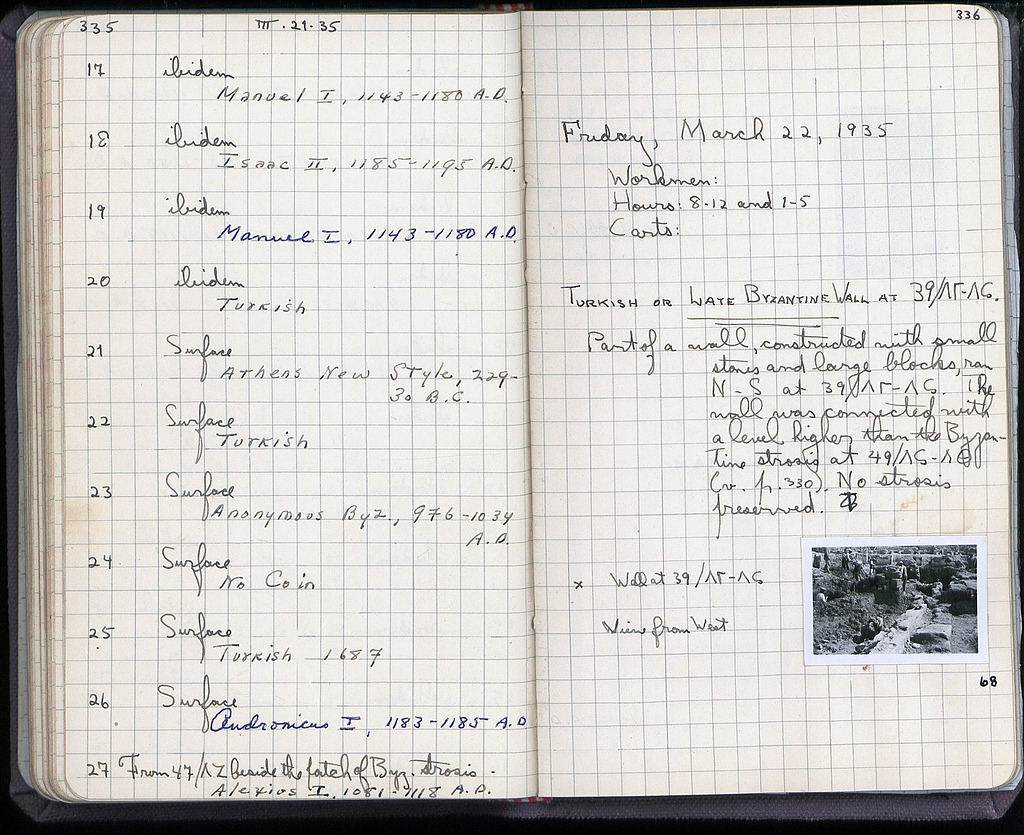 335
III.21.35
17 ibidem
Manuel I, 1143-1180 A.D.
18 ibidem
Isaac II, 1185-1195 A.D.
19 ibidem
Manuel I, 1143-1180 A.D.
20 ibidem
Turkish
21 Surface
Athens New Style, 229-
30 B.C.
22 Surface
Turkish
23 Surface
Anonymous Byz., 976-1034
A.D.
24 Surface
No Coin
25 Surface
Turkish 1687
26 Surface
Andronicus I, 1183-1185 A.D
27 From 47/ΛΖ beside the patch of Byz. strosis.
Alexios I, 1081-1118 A.D.
336
Friday, March 22, 1935
Workmen:
Hours: 8-12 and 1-5
Carts:
Turkish or Late Byzantine Wall at 39/ΛΓ-ΛϚ.
Part of a wall, constructed with small
stones and large blocks, ran
N-S at 39/ΛΓ-ΛϚ. The
wall was connected with
a level higher than the Byzan-
tine strosis at 49/ΛϚ-ΛΘ
(v. p. 330). No strosis
preserved.
x Wall at 39/ΛΓ-ΛϚ
View from West
68